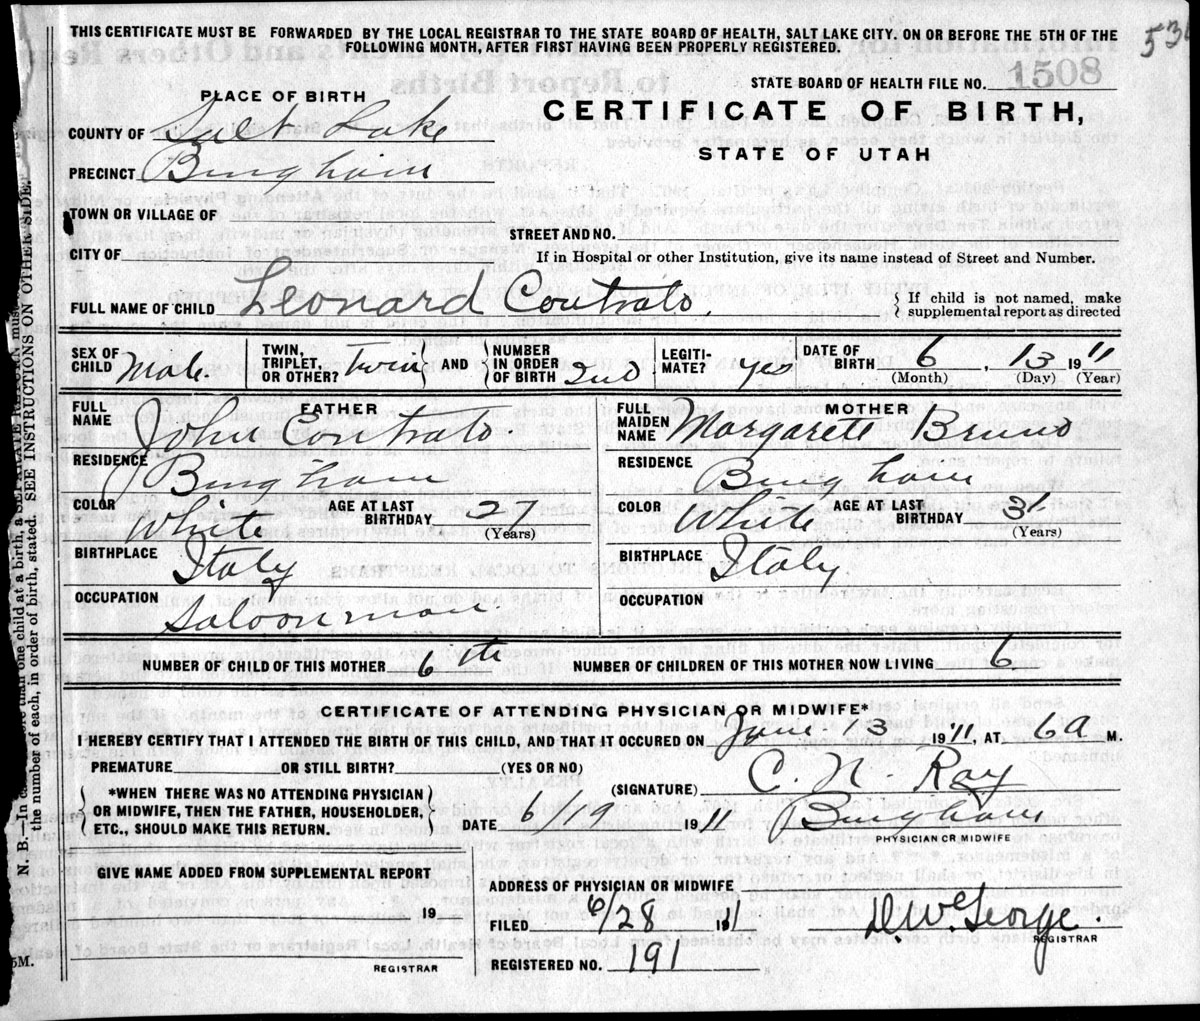 THIS CERTIFICATE MUST BE FORWARDED BY THE LOCAL REGISTRAR TO THE STATE BOARD OF HEALTH, SALT LAKE CITY. ON OR BEFORE THE 5TH OF THE
FOLLOWING MONTH, AFTER FIRST HAVING BEEN PROPERLY REGISTERED.
STATE BOARD OF HEALTH FILE NO. 1508
PLACE OF BIRTH
CERTIFICATE OF BIRTH,
STATE OF UTAH
COUNTY OF Salt Lake
PRECINCT Bingham
TOWN OR VILLAGE OF
STREET AND NO.
CITY OF
If in Hospital or other Institution, give its name instead of Street and Number.
FULL NAME OF CHILD Leonard Contrato.
{ If child is not named, make
supplemental report as directed
SEX OF CHILD Male.
TWIN, TRIPLET, OR OTHER? Twin } AND { NUMBER IN ORDER OF BIRTH 2nd
LEGITI- MATE? yes
DATE OF BIRTH 6, 13 1911
(Month) (Day) (Year)
FATHER
FULL NAME John Contrato
RESIDENCE Bingham
COLOR White AGE AT LAST BIRTHDAY 27
(Years)
BIRTHPLACE Italy
OCCUPATION Saloonman.
MOTHER
FULL MAIDEN NAME Margarett Bruno
RESIDENCE Bingham
COLOR White AGE AT LAST BIRTHDAY 31
(Years)
BIRTHPLACE Italy.
OCCUPATION
NUMBER OF CHILD OF THIS MOTHER 6th NUMBER OF CHILDREN OF THIS MOTHER NOW LIVING 6
CERTIFICATE OF ATTENDING PHYSICIAN OR MIDWIFE*
I HEREBY CERTIFY THAT I ATTENDED THE BIRTH OF THIS CHILD, AND THAT IT OCCURED ON June 13 1911, AT 6a M.
PREMATURE OR STILL BIRTH? (YES OR NO)
(SIGNATURE) C. N. Ray
{ *WHEN THERE WAS NO ATTENDING PHYSICIAN
OR MIDWIFE, THEN THE FATHER, HOUSEHOLDER,
ETC., SHOULD MAKE THIS RETURN. }
DATE 6/19 1911 Bingham
PHYSICIAN OR MIDWIFE
GIVE NAME ADDED FROM SUPPLEMENTAL REPORT
19
REGISTRAR
ADDRESS OF PHYSICIAN OR MIDWIFE
FILED 6/28 1911 George.
REGISTRAR
REGISTERED NO. 191
5M.
N. B.—In more than one child at a birth, a SEPARATE RETURN must
the number of each, in order of birth, stated. SEE INSTRUCTIONS ON OTHER SIDE.